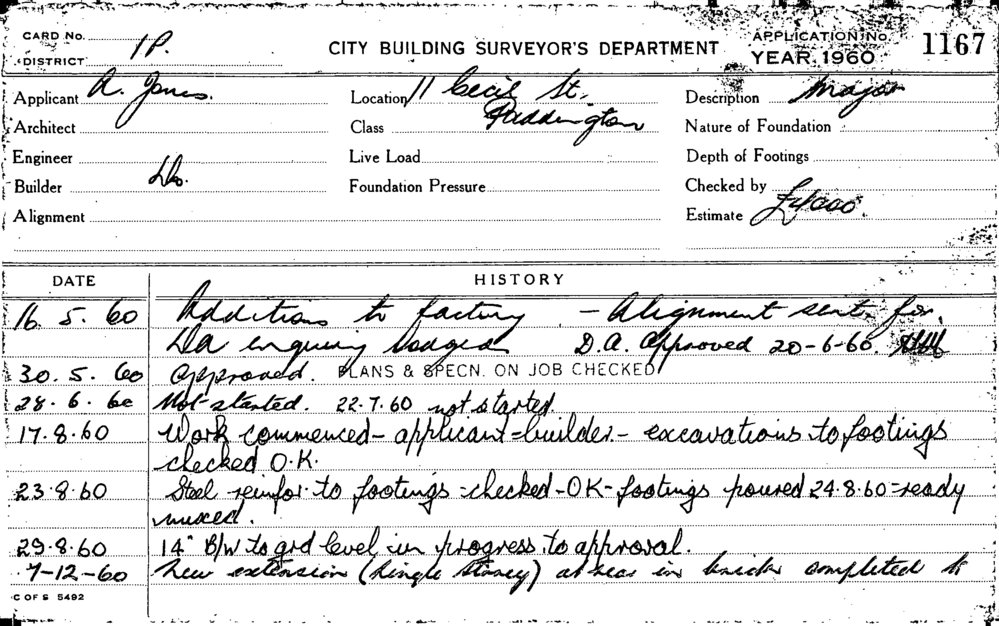 CARD No. 1P. CITY BUILDING SURVEYOR'S DEPARTMENT APPLICATION No. 1167
DISTRICT YEAR 1960
Applicant A. Jones. Location 11 Cecil St, Description Major
Architect Class Paddington Nature of Foundation
Engineer Live Load Depth of Footings
Builder Do. Foundation Pressure Checked by
Alignment Estimate £4000.
DATE HISTORY
16. 5. 60 Additions to factory - Alignment sent for.
Da enquiry lodged D.A. Approved 20-6-60.
30. 5. 60 Approved. PLANS & SPECN. ON JOB CHECKED
28. 6. 60 Not started. 22.7.60 not started.
17.8.60 Work commenced - applicant = builder - excavations to footings
checked O.K.
23.8.60 Steel reinfor to footings - checked - OK - footings poured 24.8.60 = ready
mixed.
29.8.60 14" B/W to grd level in progress to approval.
7-12-60 New extension (single storey) at rear in bricks completed to
C OF S 5492